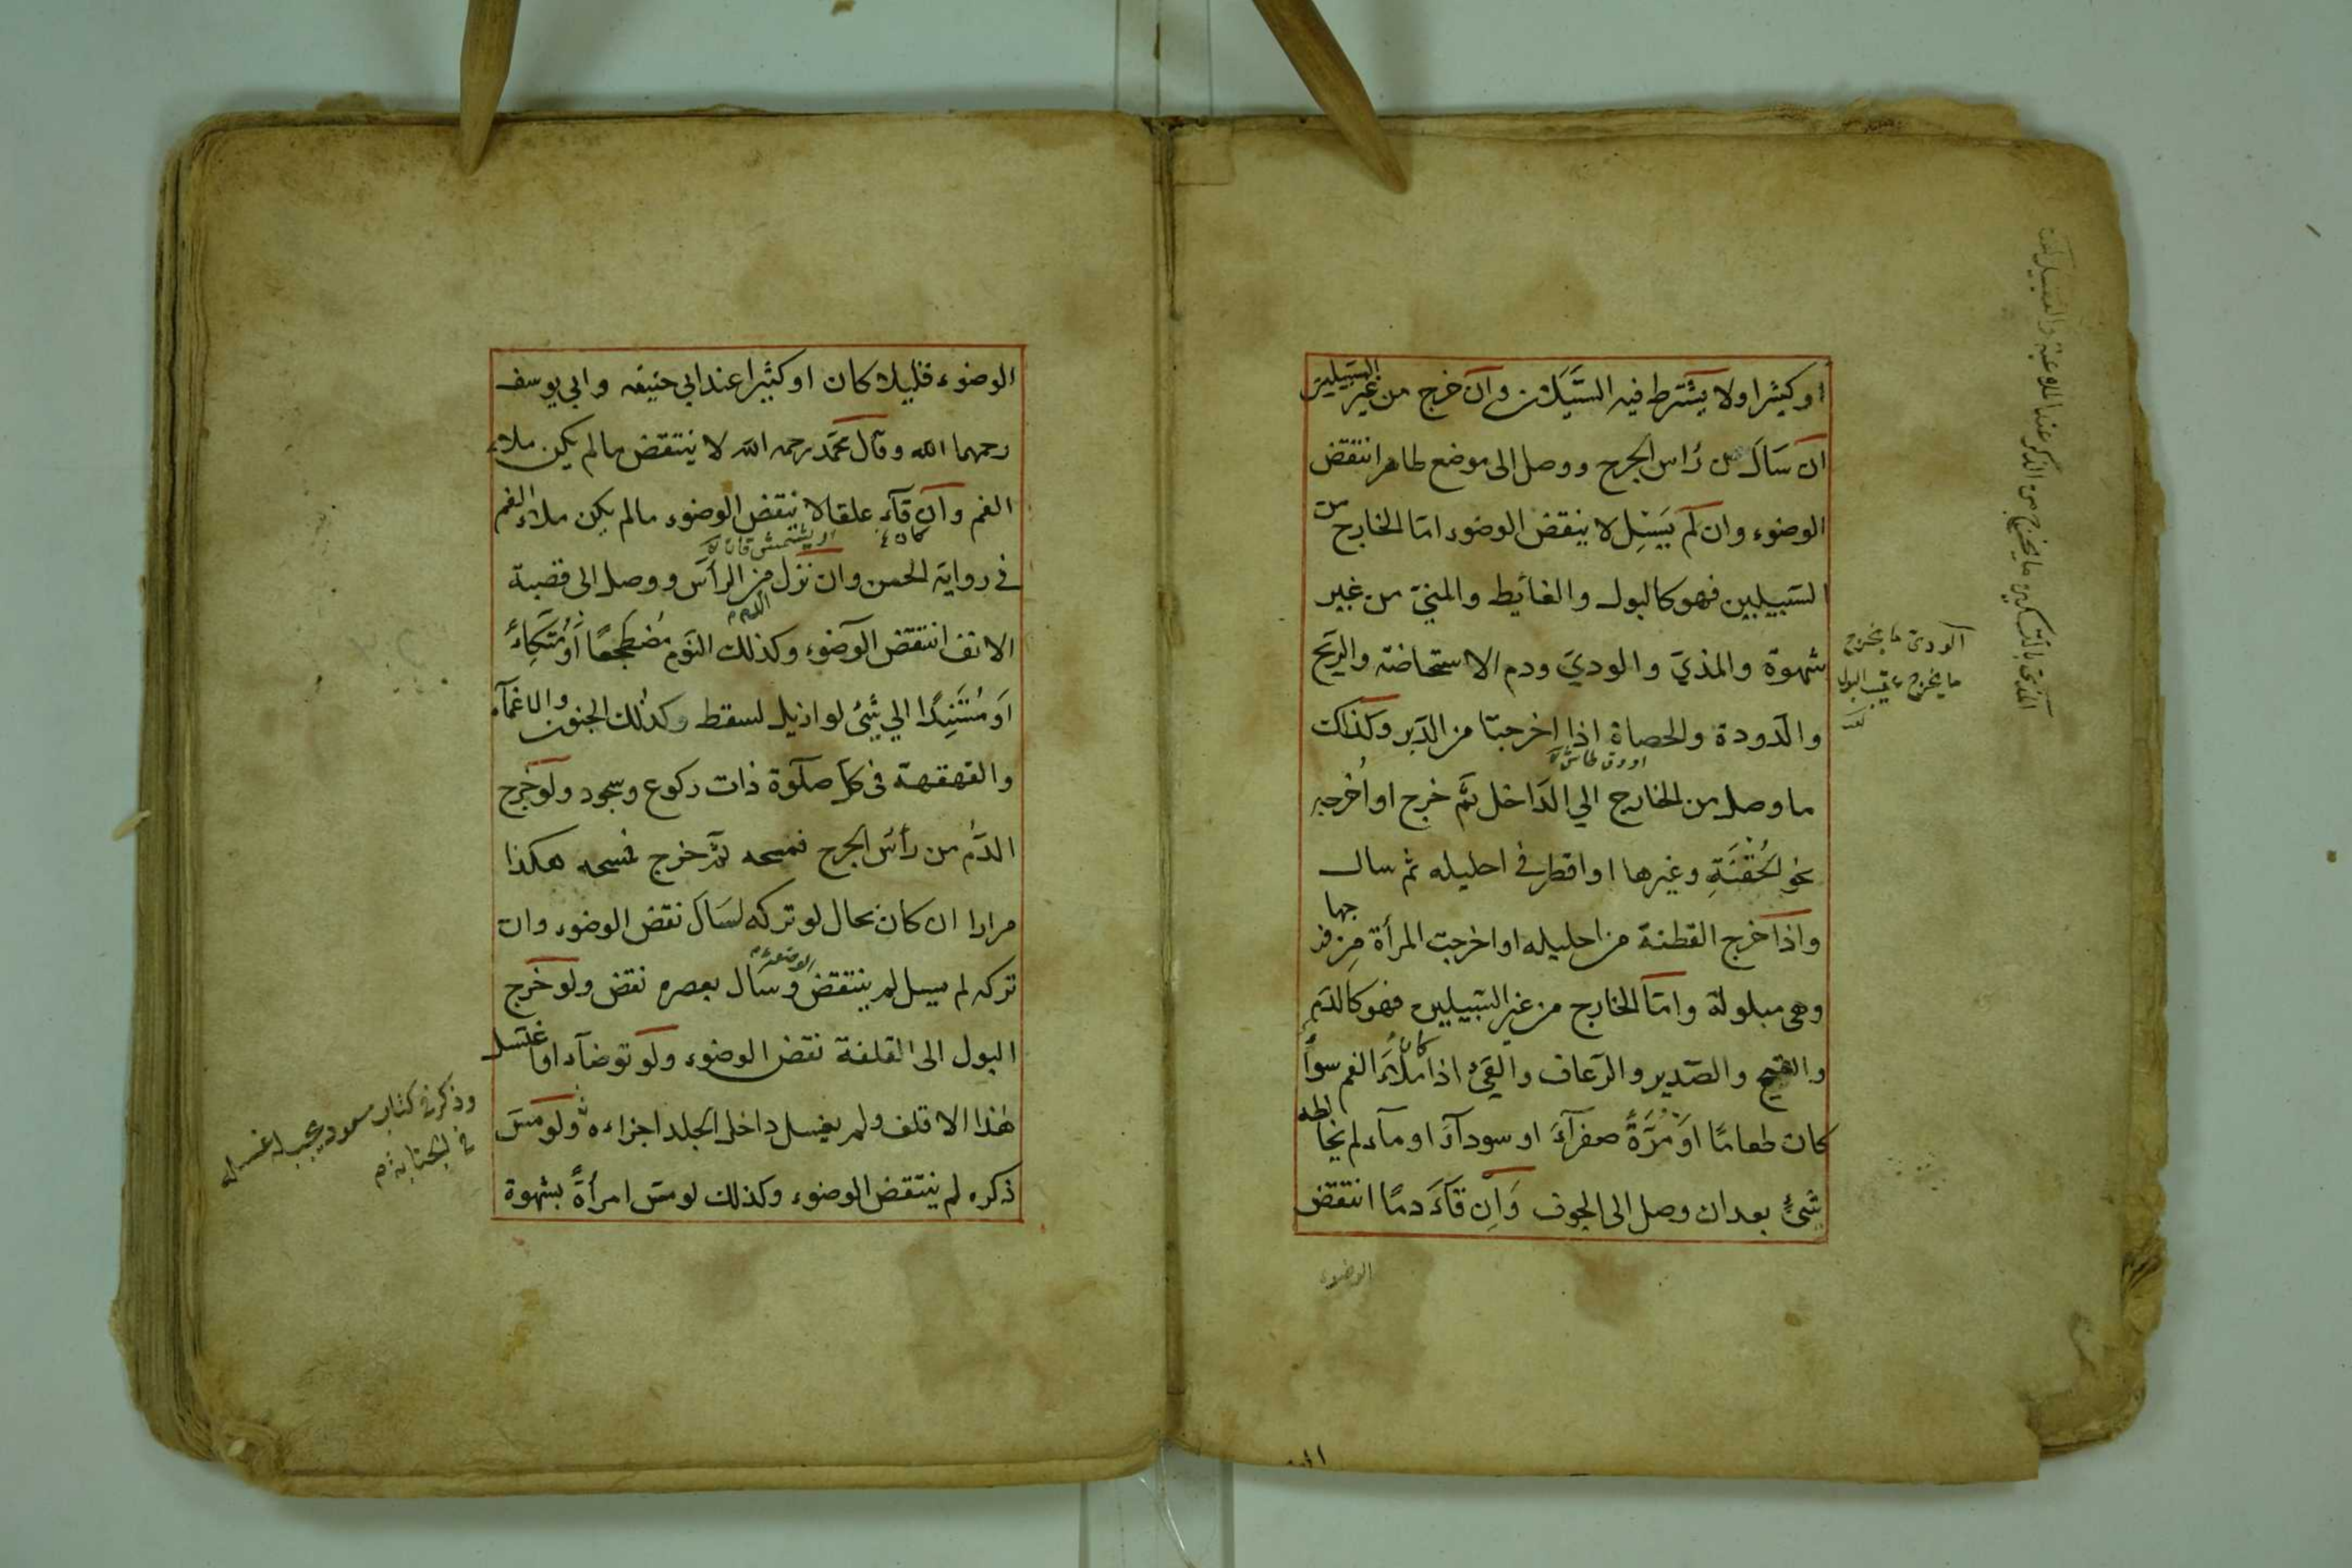 او كثيرا ولا يشترط فيه السَّيَلان وان خرج من غير السبيلين
ان سَالَ من رأس الجرح ووصل الى موضع طاهر انتقض
الوضوء وان لم يَسِل لا ينقض الوضوء امّا الخارج من
السّبيلين فهو كالبول والغايط والمنيّ من غير
شهوة والمذيّ والوديّ ودم الاستحاضة والريح
والدّودة والحصاة اذا اخرجتا من الدّبر وكذلك
ما وصل من الخارج الي الدّاخل ثمّ خرج او اُخرجه
نحو الحُقْنَةِ وغيرها او اقطر في احليله ثم سال
واذا خرج القطنة من احليله او اخرجت المرأة مِن فرجها
وهى مبلولة وامّا الخارج من غير السّبيلين فهو كالدّم
والقيح والصّديد والرّعاف والقئ اذا كان مَلأَ الفم سواءً
كان طعامًا اَو مُرَّةً صفرآءَ او سودآءَ او مآء لم يخالطه
شئٌ بعد ان وصل الى الجوف وَان قآءَ دمًا انتقض
الوضوء
الودى ما يخرج
ما يخرج عقيب البول
الوضوء قليلا كان او كثيرا عند ابي حنيفه وابي يوسف
رحمهما الله وقال محمّد رحمه الله لا ينتقض ما لم يكن ملاء
الفم وان قآء علقا لا ينقض الوضوء ما لم يكن ملاء الفم
في رواية الحسن وان نزل من الرأس ووصل الى قصبة
الدم
الانف انتقض الوضوء وكذلك النّوم مُضطجعًا اَو مُتّكِاءً
اَو مُسْتَنِدًا الي شئ لو ازيل لسقط وكذلك الجنون والاغمآء
والقهقهة فى كلّ صلوة ذات ركوع وسجود ولو خرج
الدّم من رأس الجرح فمسحه ثمّ خرج فمسحه هكذا
مرارا ان كان بحال لو تركه لسَالَ نقض الوضوء وان
تركه لم يسل لم ينتقض الوضوء وسال بعصره نقض ولو خرج
البول الى القلفة نقض الوضوء ولو توضآء او اغتسل
هذا الاقلف ولم يغسل داخل الجلد اجزاءه ولو مسّ
ذكره لم ينتقض الوضوء وكذلك لو مسّ امرأةً بشهوة
وذكر في كتاب مسعودى يجب غسله
في الجنابة